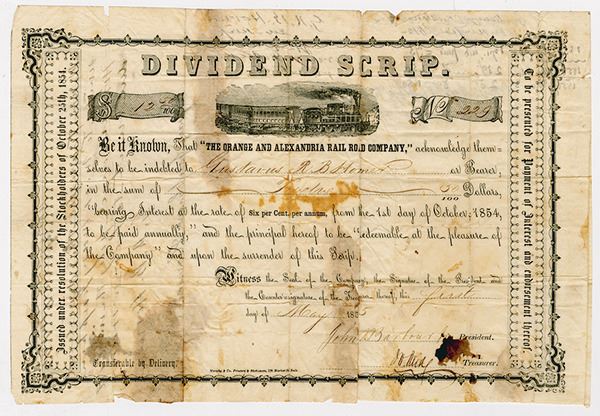 DIVIDEND SCRIP.
$ 12 50/100
No 229
Be it Known, That "THE ORANGE AND ALEXANDRIA RAIL ROAD COMPANY," acknowledge them-
selves to be indebted to Gustavus R. B. Horner or Bearer,
in the sum of Twelve 50/100 Dollars,
"bearing Interest at the rate of Six per Cent. per annum, from the 1st day of October, 1854,
to be paid annually," and the principal hereof to be "redeemable at the pleasure of
the Company" and upon the surrender of this Scrip.
Witness the Seal of the Company, the Signature of the President and
the Countersignature of the Treasurer thereof, this
day of May 185
John S Barbour President.
Treasurer.
Transferable by Delivery.
Issued under resolution of the Stockholders of October 25th, 1854.
To be presented for Payment of Interest and endorsement thereof.